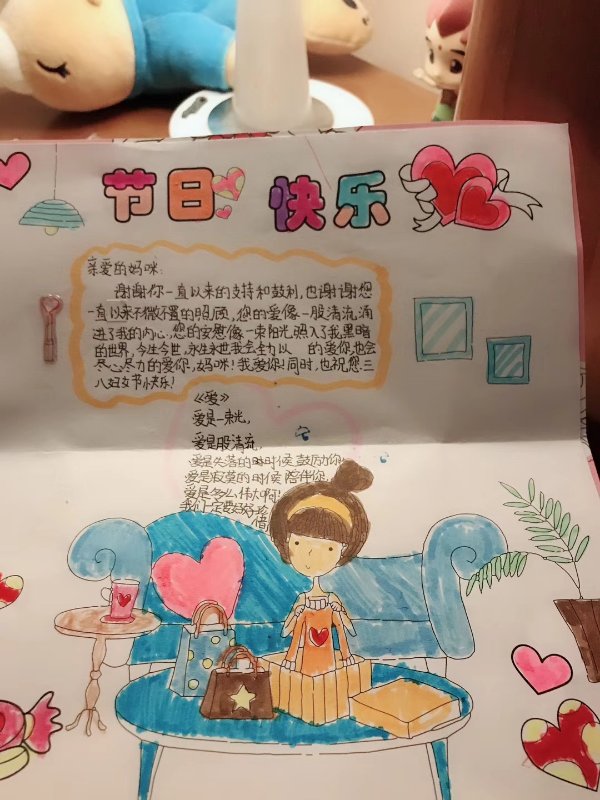 节日快乐
亲爱的妈咪:
谢谢你一直以来的支持和鼓利,也谢谢您
一直以来不微不置的照顾,您的爱像一股清流,滴
进了我的内心,您的安慰像一束阳光,照入了我黑暗
的世界,今生今世,永生永世我会全力以 的爱你,也会
尽心尽力的爱你,妈咪!我爱你!同时,也祝您三
八妇女节小快乐!
《爱》
爱是一束光,
爱是股清流,
爱是失落的时候 鼓励你,
爱是寂莫的时候 陪伴你,
爱是多么伟大啊!
我们一定要好好珍
惜